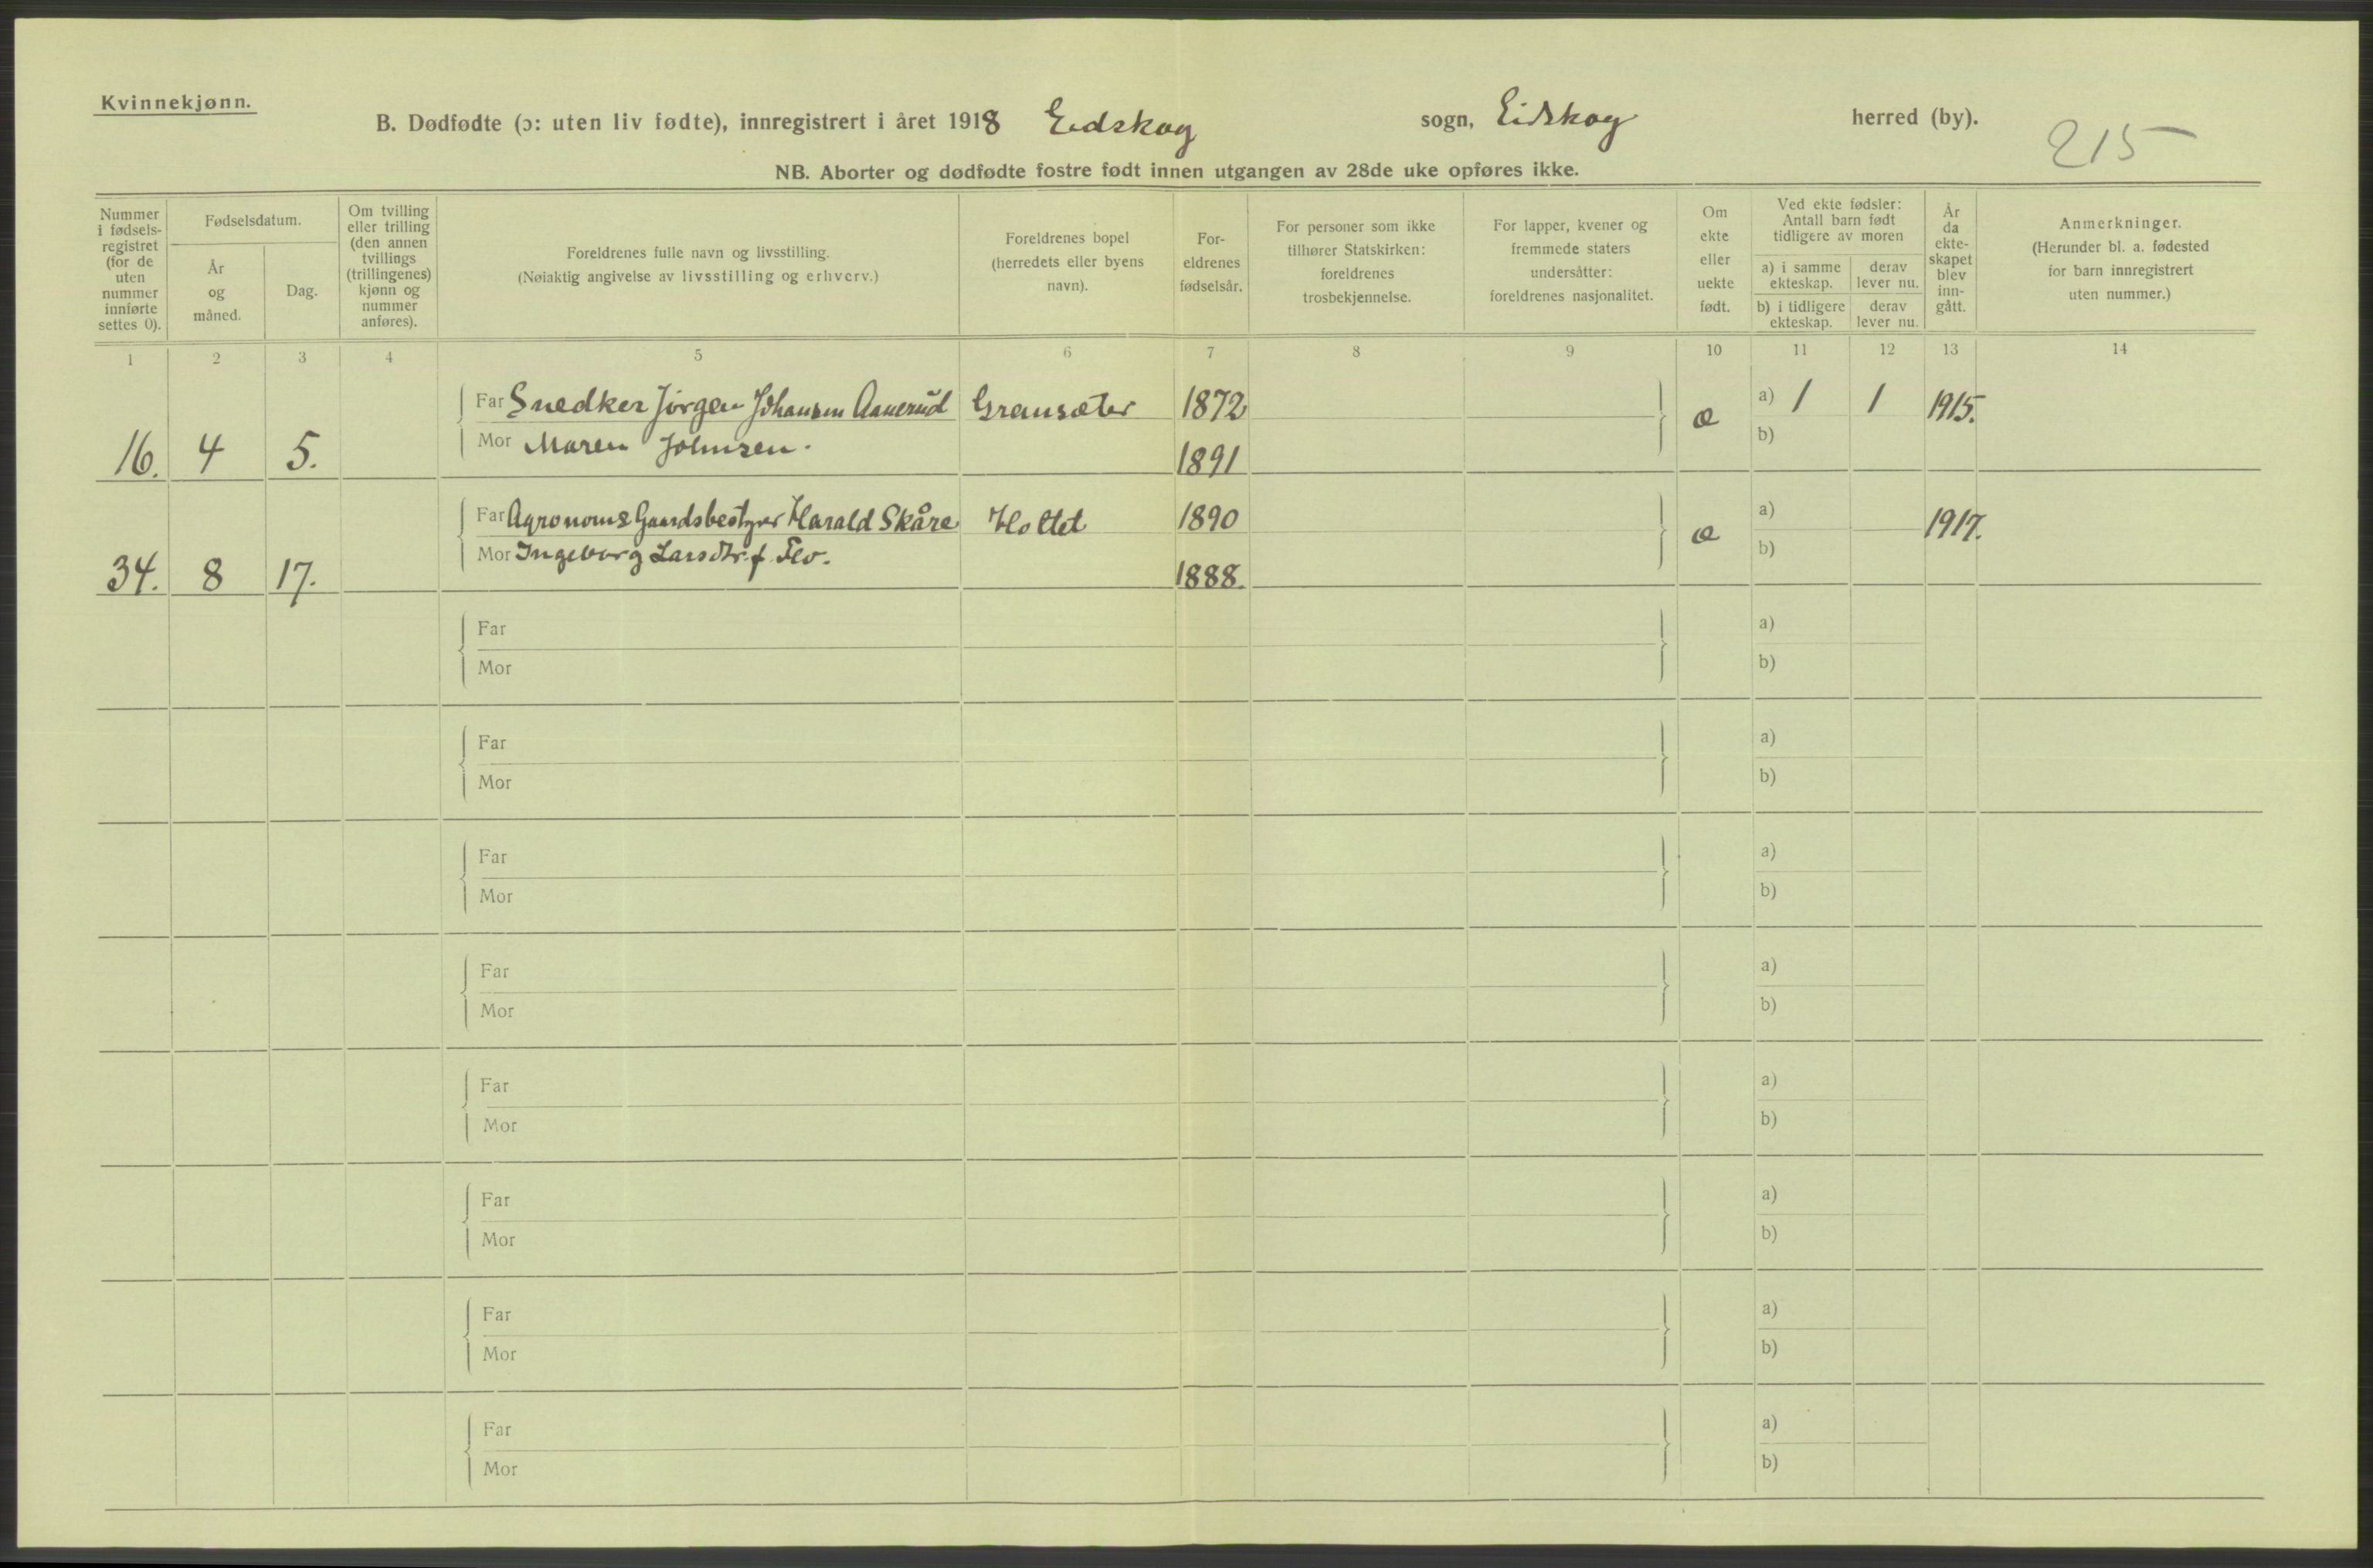 Kvinnekjønn.
B. Dødfødte (ɔ: uten liv fødte), innregistrert i året 1918 Eidskog sogn, Eidskog herred (by).
215
NB. Aborter og dødfødte fostre født innen utgangen av 28de uke opføres ikke.
Nummer i fødsels-registret (for de uten nummer innførte settes 0).
Fødselsdatum.
År og måned.
Dag.
Om tvilling eller trilling (den annen tvillings (trillingenes) kjønn og nummer anføres).
Foreldrenes fulle navn og livsstilling.
(Nøiaktig angivelse av livsstilling og erhverv.)
Foreldrenes bopel (herredets eller byens navn).
For-eldrenes fødselsår.
For personer som ikke tilhører Statskirken: foreldrenes trosbekjennelse.
For lapper, kvener og fremmede staters undersåtter: foreldrenes nasjonalitet.
Om ekte eller uekte født.
Ved ekte fødsler: Antall barn født tidligere av moren
a) i samme ekteskap.
derav lever nu.
b) i tidligere ekteskap.
derav lever nu.
År da ekte-skapet blev inn-gått.
Anmerkninger.
(Herunder bl. a. fødested for barn innregistrert uten nummer.)
1 2 3 4 5 6 7 8 9 10 11 12 13 14
Far Snedker Jørgen Johansen Aanerud Gransæter 1872 a) 1 1 1915.
16. 4 5. Mor Maren Johnsen. 1891 æ b)
Far Agronom & Gaardsbestyrer Harald Skåre Holtet 1890 a) 1917.
34. 8 17. Mor Ingeborg Larsdtr. f. Flo. 1888. æ b)
Far a)
Mor b)
Far a)
Mor b)
Far a)
Mor b)
Far a)
Mor b)
Far a)
Mor b)
Far a)
Mor b)
Far a)
Mor b)
Far a)
Mor b)